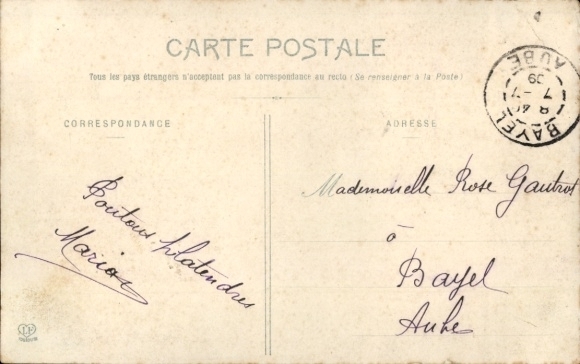 CARTE POSTALE
Tous les pays étrangers n'acceptent pas la correspondance au recto (Se renseigner à la Poste)
CORRESPONDANCE
ADRESSE
BAYEL
8 4
7 -7
09
AUBE
Mademoiselle Rose Gautrot
à
Bayel
Aube
Poutoux